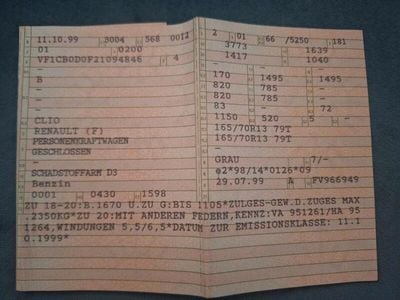 11.10.99 3004 568 0012
01 0200
VF1CB0D0F21094846 4
–
B
–
–
CLIO
RENAULT (F)
PERSONENKRAFTWAGEN
GESCHLOSSEN
–
SCHADSTOFFARM D3
Benzin
0001 0430 1598
2 01 66 /5250 181
3773 1639
1417 1040
– –
170 1495 1495
820 785 –
820 785 –
83 – 72
1150 520 5 –
165/70R13 79T
165/70R13 79T
–
GRAU 7/–
e2*98/14*0126*09
29.07.99 A FV966949
ZU 18-20:B.1670 U.ZU G:BIS 1105*ZULGES-GEW.D.ZUGES MAX
.2350KG*ZU 20:MIT ANDEREN FEDERN,KENNZ:VA 951261/HA 95
1264,WINDUNGEN 5,5/6,5*DATUM ZUR EMISSIONSKLASSE: 11.1
0.1999*